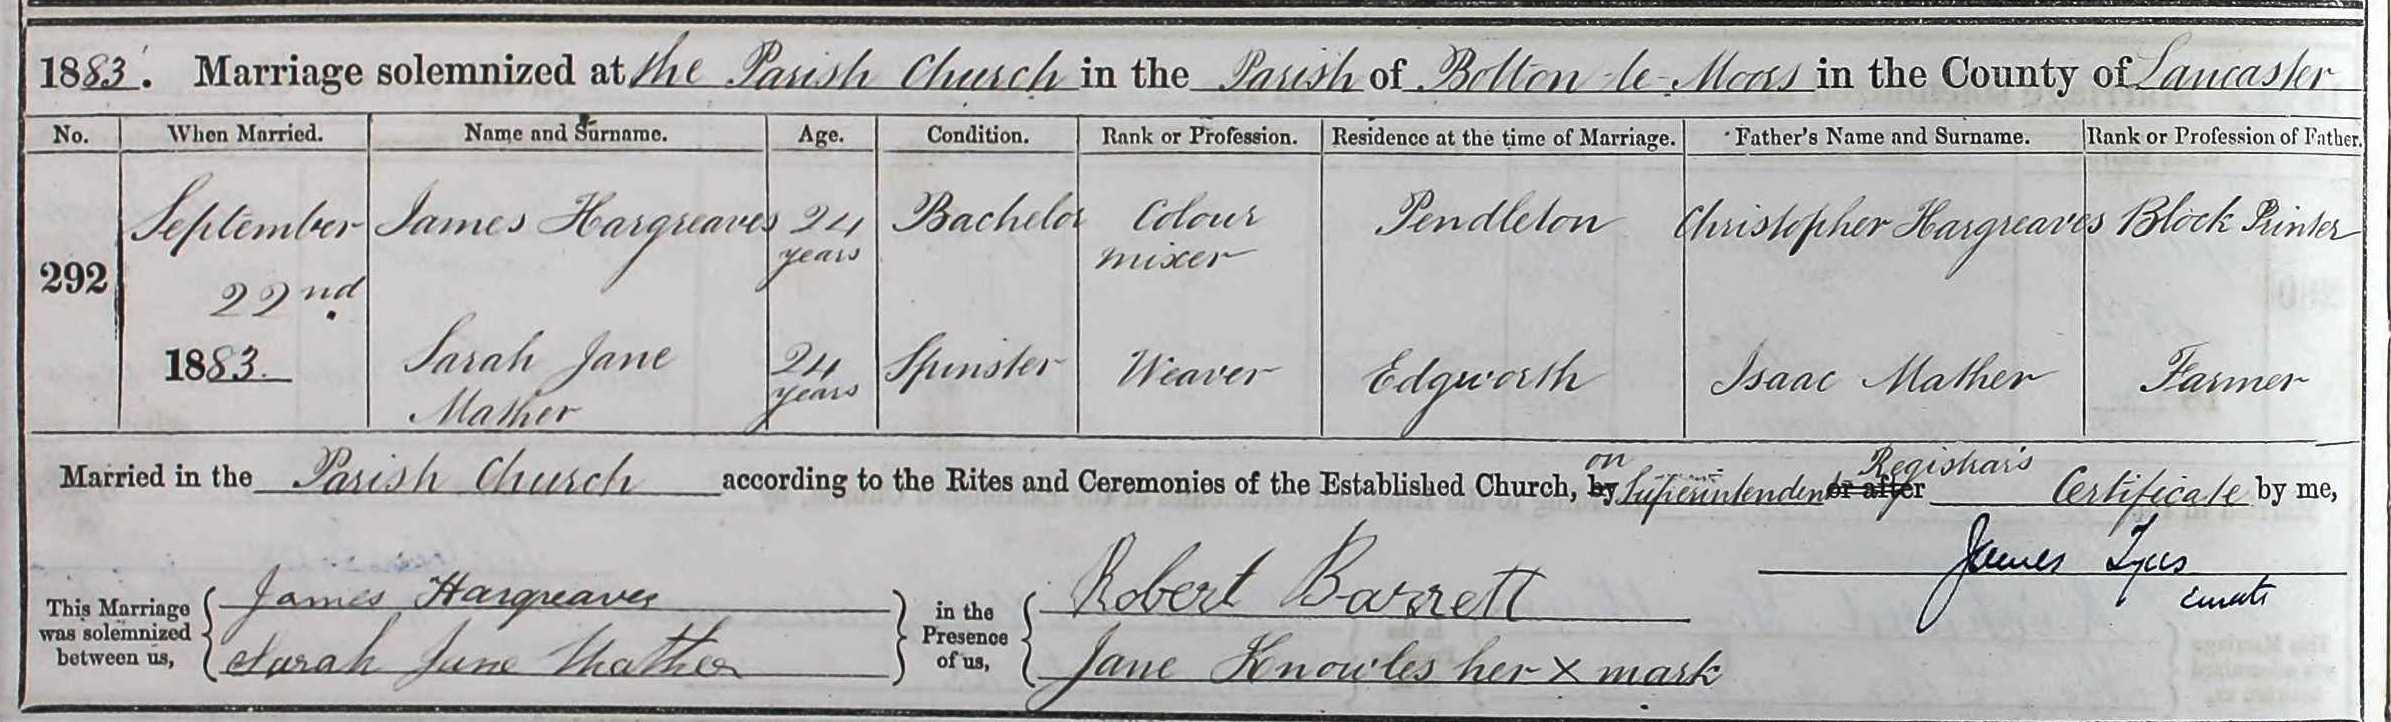 1883. Marriage solemnized at the Parish Church in the Parish of Bolton-le-Moors in the County of Lancaster
No. When Married. Name and Surname. Age. Condition. Rank or Profession. Residence at the time of Marriage. Father's Name and Surname. Rank or Profession of Father.
292 September 22nd 1883. James Hargreaves 24 years Bachelor Colour mixer Pendleton Christopher Hargreaves Block Printer
Sarah Jane Mather 24 years Spinster Weaver Edgworth Isaac Mather Farmer
Married in the Parish Church according to the Rites and Ceremonies of the Established Church, by on Superintendent or after Registrar's Certificate by me,
James
Curate
This Marriage was solemnized between us, James Hargreaves Sarah Jane Mather
in the Presence of us, Robert Barrett Jane Knowles her x mark